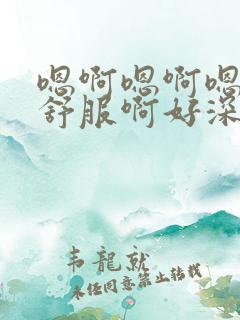 嗯啊嗯啊嗯
舒服啊好深
韦龍就
未经同意禁止转载